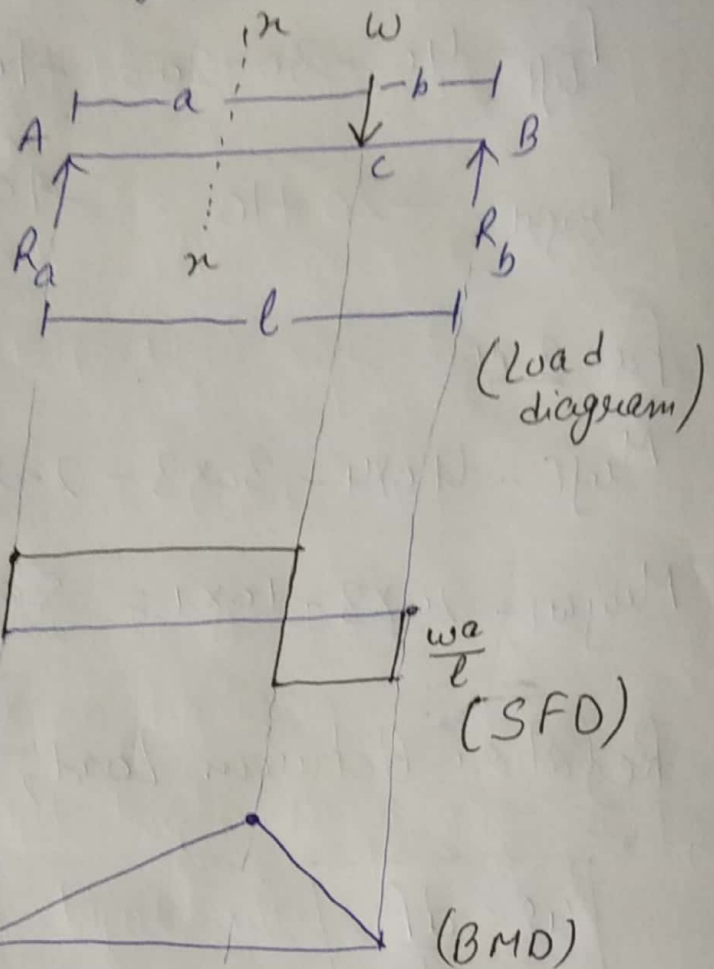 x W
a b
A B
C
Ra Rb
x
l
(Load
diagram)
wa/l
(SFD)
(BMD)